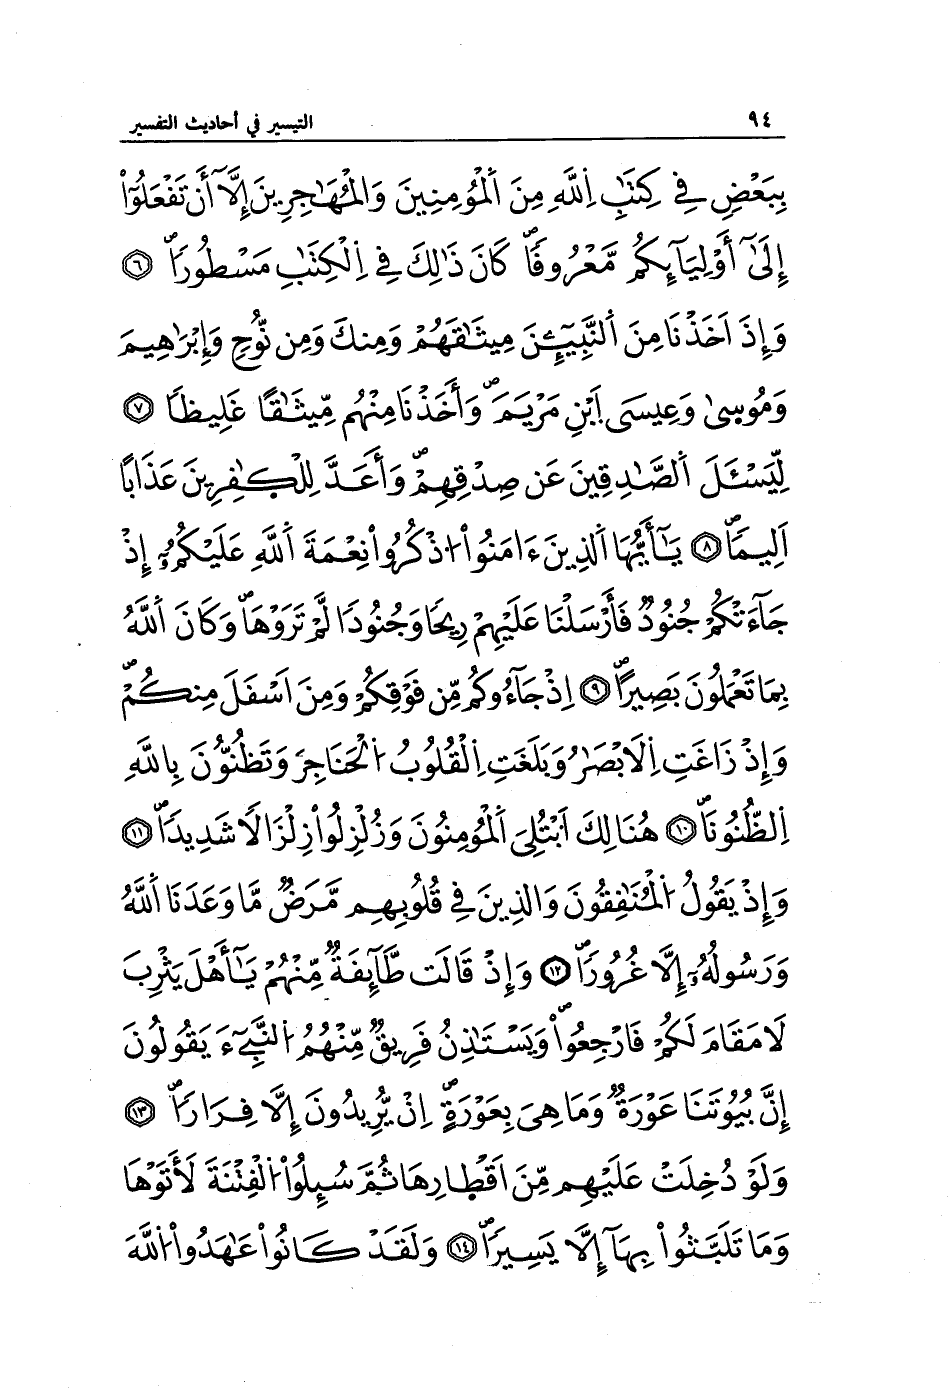 ٩٤
التيسير في أحاديث التفسير
بِبَعْضٍ فِي كِتَٰبِ اِ۬للَّهِ مِنَ اَ۬لْمُؤْمِنِينَ وَالْمُهَٰجِرِينَ إِلَّآ أَن تَفْعَلُوٓاْ
إِلَىٰٓ أَوْلِيَآئِكُم مَّعْرُوفاٗ كَانَ ذَٰلِكَ فِي اِ۬لْكِتَٰبِ مَسْطُوراٗ ٦
وَإِذَ اَخَذْنَا مِنَ اَ۬لنَّبِيٓـِٕنَ مِيثَٰقَهُمْ وَمِنكَ وَمِن نُّوحٍ وَإِبْرَٰهِيمَ
وَمُوسىٰ وَعِيسَى اَ۪بْنِ مَرْيَمَ وَأَخَذْنَا مِنْهُم مِّيثَٰقاً غَلِيظاٗ ٧
لِّيَسْـَٔلَ اَ۬لصَّٰدِقِينَ عَن صِدْقِهِمْ وَأَعَدَّ لِلْكٰ۪فِرِينَ عَذَاباً
اَلِيماٗ ٨ يَٰٓأَيُّهَا اَ۬لذِينَ ءَامَنُواْ اُ۟ذْكُرُواْ نِعْمَةَ اَ۬للَّهِ عَلَيْكُمُۥٓ إِذْ
جَآءَتْكُمْ جُنُودٞ فَأَرْسَلْنَا عَلَيْهِمْ رِيحاٗ وَجُنُوداٗ لَّمْ تَرَوْهَا وَكَانَ اَ۬للَّهُ
بِمَا تَعْمَلُونَ بَصِيراً ٩ اِذْ جَآءُوكُم مِّن فَوْقِكُمْ وَمِنَ اَسْفَلَ مِنكُمْ
وَإِذْ زَاغَتِ اِ۬لَابْصَٰرُ وَبَلَغَتِ اِ۬لْقُلُوبُ اُ۬لْحَنَاجِرَ وَتَظُنُّونَ بِاللَّهِ
اِ۬لظُّنُونَا ١٠ هُنَالِكَ اَ۟بْتُلِيَ اَ۬لْمُؤْمِنُونَ وَزُلْزِلُواْ زِلْزَالاٗ شَدِيداٗ ١١
وَإِذْ يَقُولُ اُ۬لْمُنَٰفِقُونَ وَالذِينَ فِي قُلُوبِهِم مَّرَضٞ مَّا وَعَدَنَا اَ۬للَّهُ
وَرَسُولُهُۥٓ إِلَّا غُرُوراٗ ١٢ وَإِذْ قَالَت طَّآئِفَةٞ مِّنْهُمْ يَٰٓأَهْلَ يَثْرِبَ
لَا مَقَامَ لَكُمْ فَارْجِعُواْ وَيَسْتَٰذِنُ فَرِيقٞ مِّنْهُمُ اُ۬لنَّبِيٓءَ يَقُولُونَ
إِنَّ بُيُوتَنَا عَوْرَةٞ وَمَا هِيَ بِعَوْرَةٍ اِنْ يُّرِيدُونَ إِلَّا فِرَاراٗ ١٣
وَلَوْ دُخِلَتْ عَلَيْهِم مِّنَ اَقْطٰ۪ارِهَا ثُمَّ سُئِلُواْ اُ۬لْفِتْنَةَ لَأَتَوْهَا
وَمَا تَلَبَّثُواْ بِهَآ إِلَّا يَسِيراٗ ١٤ وَلَقَدْ كَانُواْ عَٰهَدُواْ اُ۬للَّهَ